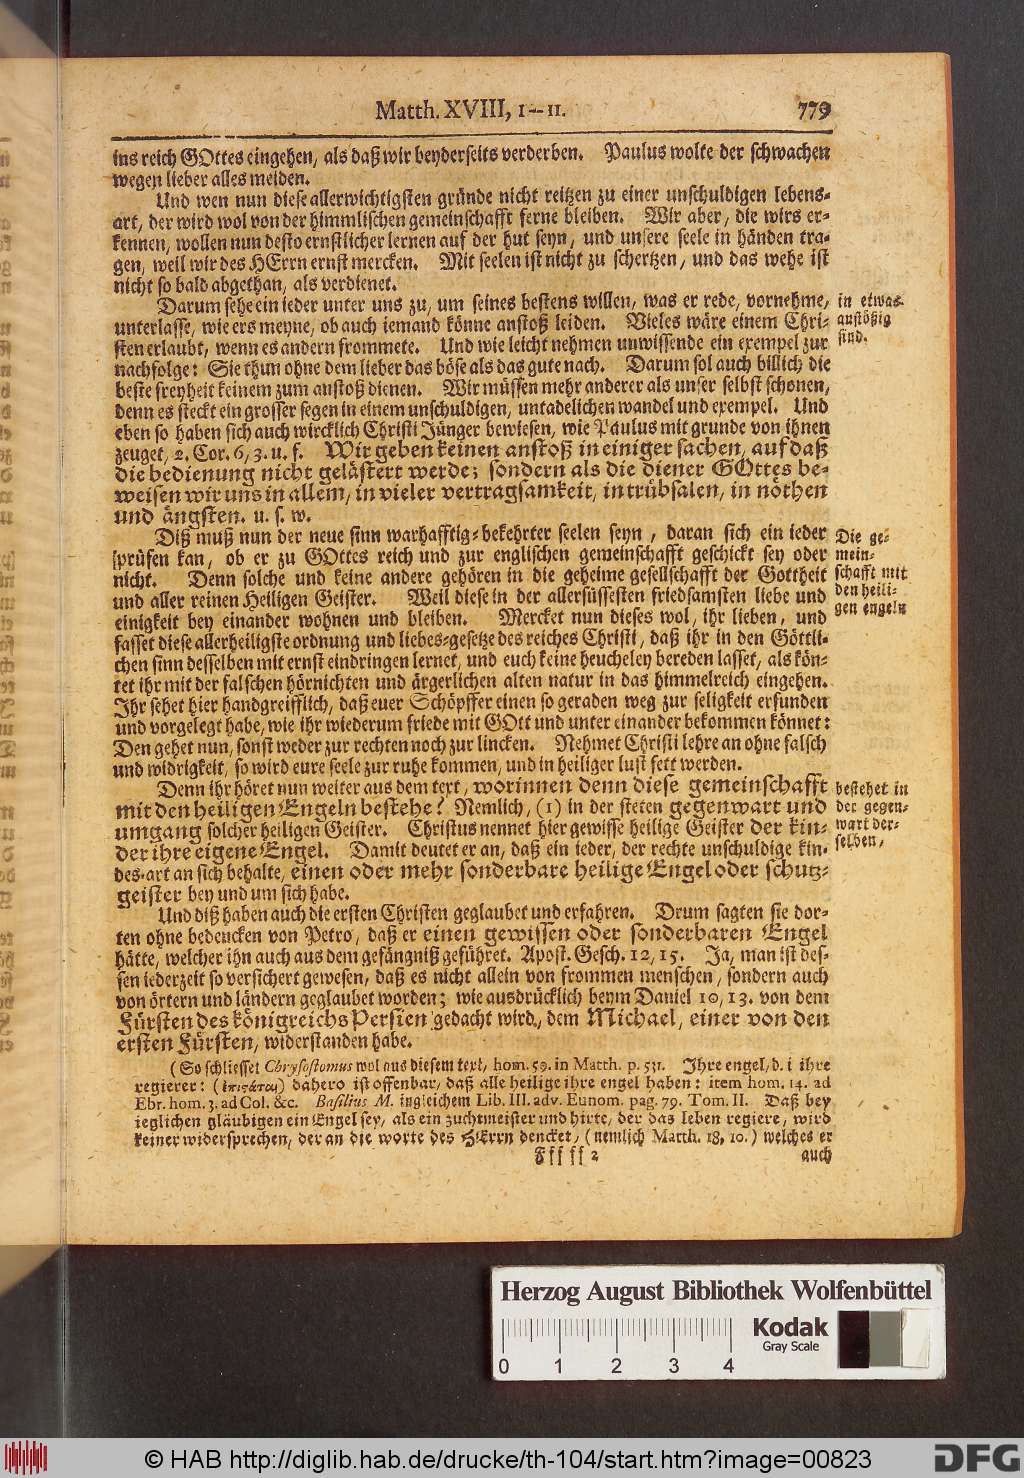 Matth. XVIII, 1--11. 779
ins reich GOttes eingehen, als daß wir beyderseits verderben. Paulus wolte der schwachen
wegen lieber alles meiden.
Und wen nun diese allerwichtigsten gründe nicht reitzen zu einer unschuldigen lebens-
art, der wird wol von der himmlischen gemeinschafft ferne bleiben. Wir aber, die wirs er-
kennen, wollen nun desto ernstlicher lernen auf der hut seyn, und unsere seele in händen tra-
gen, weil wir des HErrn ernst mercken. Mit seelen ist nicht zu schertzen, und das wehe ist
nicht so bald abgethan, als verdienet.
Darum sehe ein ieder unter uns zu, um seines bestens willen, was er rede, vornehme,
unterlasse, wie ers meyne, ob auch iemand könne anstoß leiden. Vieles wäre einem Chri-
sten erlaubt, wenn es andern frommete. Und wie leicht nehmen unwissende ein exempel zur
nachfolge: Sie thun ohne dem lieber das böse als das gute nach. Darum sol auch billich die
beste freyheit keinem zum anstoß dienen. Wir müssen mehr anderer als unser selbst schonen,
denn es steckt ein grosser segen in einem unschuldigen, untadelichen wandel und exempel. Und
eben so haben sich auch wircklich Christi Jünger bewiesen, wie Paulus mit grunde von ihnen
zeuget, 2. Cor. 6, 3. u. f. Wir geben keinen anstoß in einiger sachen, auf daß
die bedienung nicht gelästert werde; sondern als die diener GOttes be-
weisen wir uns in allem, in vieler vertragsamkeit, in trübsalen, in nöthen
und ängsten. u. s. w.
in etwas
anstößig
sind.
Diß muß nun der neue sinn warhafftig-bekehrter seelen seyn, daran sich ein ieder
prüfen kan, ob er zu GOttes reich und zur englischen gemeinschafft geschickt sey oder
nicht. Denn solche und keine andere gehören in die geheime gesellschafft der Gottheit
und aller reinen Heiligen Geister. Weil diese in der allersüssesten friedsamsten liebe und
einigkeit bey einander wohnen und bleiben. Mercket nun dieses wol, ihr lieben, und
fasset diese allerheiligste ordnung und liebes-gesetze des reiches Christi, daß ihr in den Göttli-
chen sinn desselben mit ernst eindringen lernet, und euch keine heucheley bereden lasset, als kön-
tet ihr mit der falschen hörnichten und ärgerlichen alten natur in das himmelreich eingehen.
Ihr sehet hier handgreifflich, daß euer Schöpffer einen so geraden weg zur seligkeit erfunden
und vorgelegt habe, wie ihr wiederum friede mit GOtt und unter einander bekommen könnet:
Den gehet nun, sonst weder zur rechten noch zur lincken. Nehmet Christi lehre an ohne falsch
und widrigkeit, so wird eure seele zur ruhe kommen, und in heiliger lust fett werden.
Die ge-
mein-
schafft mit
den heili-
gen engeln
Denn ihr höret nun weiter aus dem text, worinnen denn diese gemeinschafft
mit den heiligen Engeln bestehe? Nemlich, (1) in der steten gegenwart und
umgang solcher heiligen Geister. Christus nennet hier gewisse heilige Geister der kin-
der ihre eigene Engel. Damit deutet er an, daß ein ieder, der rechte unschuldige kin-
des-art an sich behalte, einen oder mehr sonderbare heilige Engel oder schutz-
geister bey und um sich habe.
bestehet in
der gegen-
wart der-
selben,
Und diß haben auch die ersten Christen geglaubet und erfahren. Drum sagten sie dor-
ten ohne bedencken von Petro, daß er einen gewissen oder sonderbaren Engel
hätte, welcher ihn auch aus dem gefängniß geführet. Apost. Gesch. 12, 15. Ja, man ist des-
sen iederzeit so versichert gewesen, daß es nicht allein von frommen menschen, sondern auch
von örtern und ländern geglaubet worden; wie ausdrücklich beym Daniel 10, 13. von dem
Fürsten des königreichs Persien gedacht wird, dem Michael, einer von den
ersten Fürsten, widerstanden habe.
(So schliesset Chrysostomus wol aus diesem text, hom. 59. in Matth. p. 531. Ihre engel, d. i ihre
regierer: (ἐπιϛάται) dahero ist offenbar, daß alle heilige ihre engel haben: item hom. 14. ad
Ebr. hom. 3. ad Col. &c. Basilius M. ingleichem Lib. III. adv. Eunom. pag. 79. Tom. II. Daß bey
ieglichen gläubigen ein Engel sey, als ein zuchtmeister und hirte, der das leben regiere, wird
keiner widersprechen, der an die worte des HErrn dencket, (nemlich Matth. 18, 10.) welches er
Fffff 2 auch
Herzog August Bibliothek Wolfenbüttel
Kodak
Gray Scale
0 1 2 3 4
© HAB http://diglib.hab.de/drucke/th-104/start.htm?image=00823
DFG